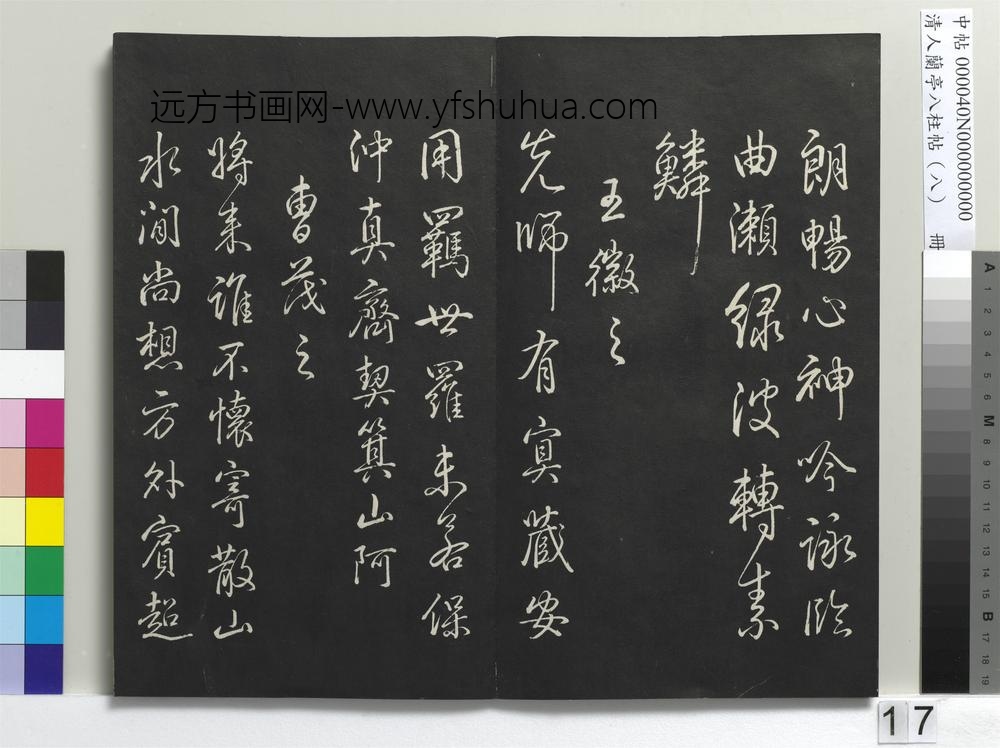 中帖 000040N000000000
清人蘭亭八柱帖（八） 冊
远方书画网-www.yfshuhua.com
朗暢心神吟詠臨
曲瀨綠波轉素
鱗
王徽之
先師有冥藏安
用羈世羅未若保
沖真齊契箕山阿
曹茂之
將來誰不懷寄散山
水間尚想方外賓超
A 1 2 3 4 5 6 M 8 9 10 11 12 13 14 15 B 17 18 19
17